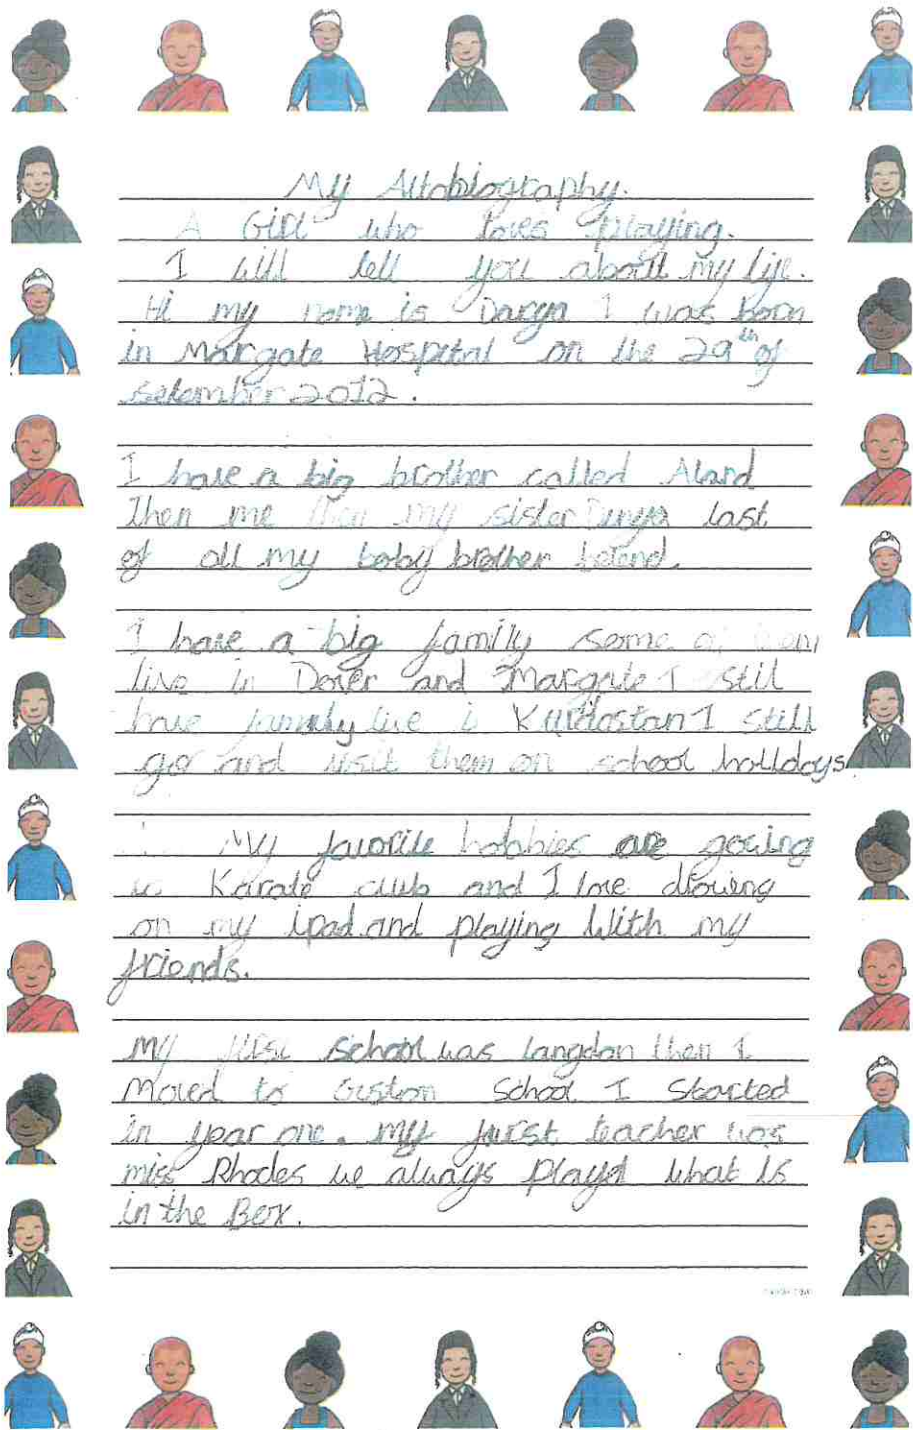 My Autobiography.
A Girl who loves playing.
I will tell you about my life.
Hi my name is Darya I was born
in Margate Hospital on the 29th of
setember 2012.
I have a big brother called Aland
Then me then my sister Dinya last
of all my baby brother belend.
I have a big family some of them
live in Dover and Margate I still
have family live in Kurdastan I still
go and visit them on school holldays
My favorite hobbies are going
to Karate club and I love drowing
on my ipad and playing With my
friends.
My first school was langdon then I
Moved to Guston School I Started
in year one. My furst teacher was
miss Rhodes we always playd what is
in the Box.